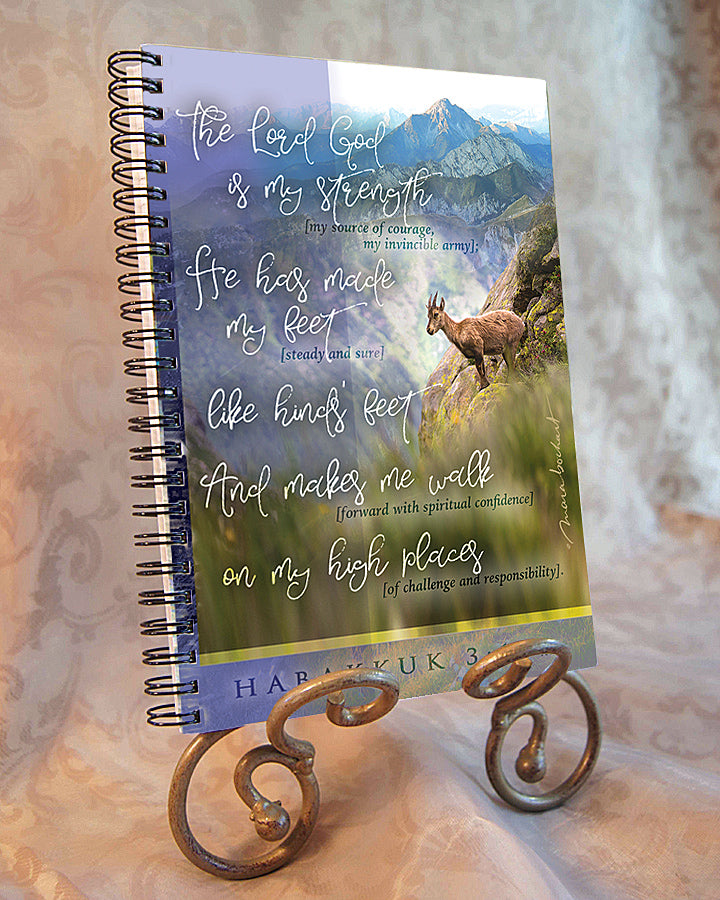 The Lord God
is my strength
[my source of courage,
my invincible army];
He has made
my feet
[steady and sure]
like hinds' feet
And makes me walk
[forward with spiritual confidence]
on my high places
[of challenge and responsibility].
HABAKKUK 3:
mara bochart